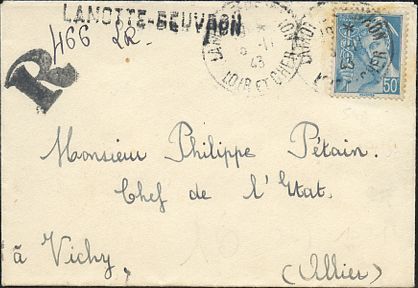 LAMOTTE-BEUVRON
466 LR.
R
LOIR ET CHER
43
50
Monsieur Philippe Pétain.
Chef de l'Etat.
à Vichy,
(Allier)